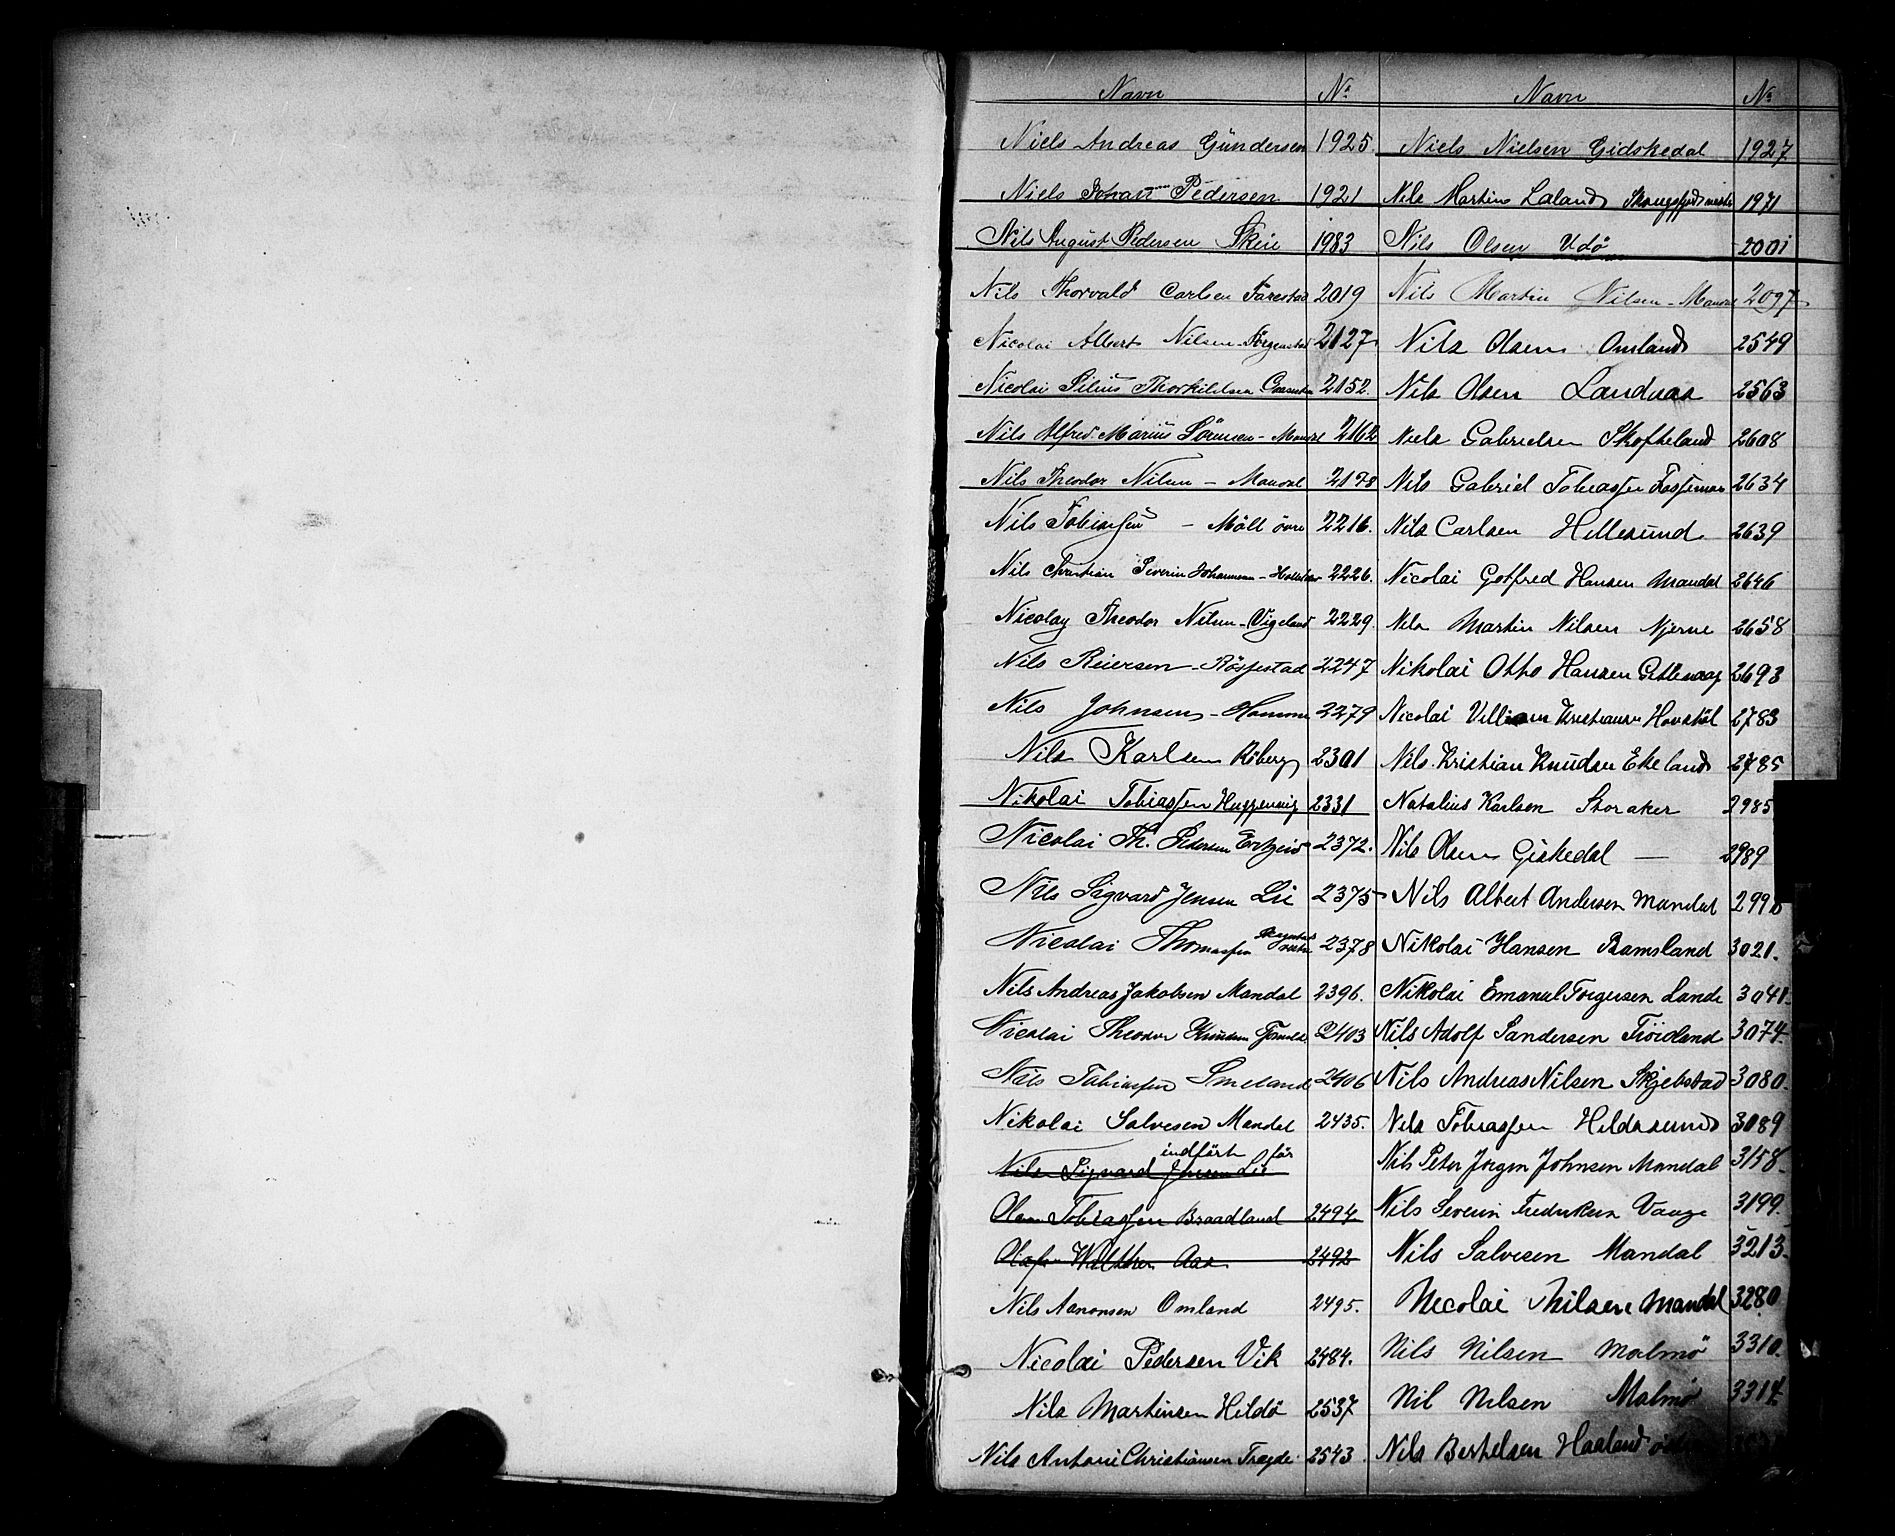 Navn No Navn No
Niels Andreas Gündersen 1925. Niels Nielsen Gidskedal 1927
Niels Johan Pedersen 1921 Nils Martin Laland 1971
Nils August Pedersen Skeie 1983 Nils Olsen Udö 2001
Nils Thorvald Carlsen Tarestad 2019 Nils Martin Nilsen - Mandal 2097
Nicolai Albert Nilsen 2127 Nils Olsen Omland 2549
Nicolai Thorkildsen 2152. Nils Olsen Landaas 2563
Nils Alfred Marius Sörensen - Mandal 2162 Niels Gabrielsen Skofteland 2608
Nils Theodor Nilsen - Mandal 2178 Nils Gabriel Tobiassen 2634
Nils Tobiassen - Möll övre 2216. Nils Carlsen Hillesund 2639
Nils Christian Severin Johannesen 2226. Nicolai Gotfred Hansen Mandal 2646
Nicolay Theodor Nilsen - Vigeland 2229. Nils Martin Nilsen Njerve 2658
Nils Reiersen - Rösfestad 2247 Nikolai Otto Hansen 2693
Nils Johnsen - Homme 2279 Nicolai Villiam Kristiansen 2783
Nils Karlsen Röberg 2301 Nils Kristian Knudsen Ekeland 2785
Nikolai Tobiassen 2331 Natalius Karlsen Storaker 2985
Nicolai Th. Pedersen 2372. Nils Olsen Giskedal — 2989
Nils Sigvard Jensen Lie 2375 Nils Albert Andersen Mandal
Nicolai Thomassen 2378 Nikolai Hansen Ramsland 3021.
Nils Andreas Jakobsen Mandal 2396. Nikolai Emanuel Torgersen Lande 3041
Nicolai Theodor Knudsen 2403 Nils Adolf Sandersen Tröidland 3074
Nils Tobiassen Smeland 2406 Nils Andreas Nilsen Skjebstad 3080
Nikolai Salvesen Mandal 2435. Nils Tobiassen Hildesund 3089
indfört för
Nils Sigvard Jensen Lie Nils Peter Jörgen Johnsen Mandal 3158
Olen Tobiassen Braadland 2494 Nils Severin Fredriksen Vaage 3199
Olaf Walther Aas 2492 Nils Salvesen Mandal 3213
Nils Aanonsen Omland 2495. Nicolai Nilsen Mandal 3280
Nicolai Pedersen Vik 2484. Nils Nilsen Malmö 3310
Nils Martinsen Hildö 2537 Nil Nilsen Malmö
Nils Antoni Christiansen Tregde 2543 Nils Bertelsen Haaland